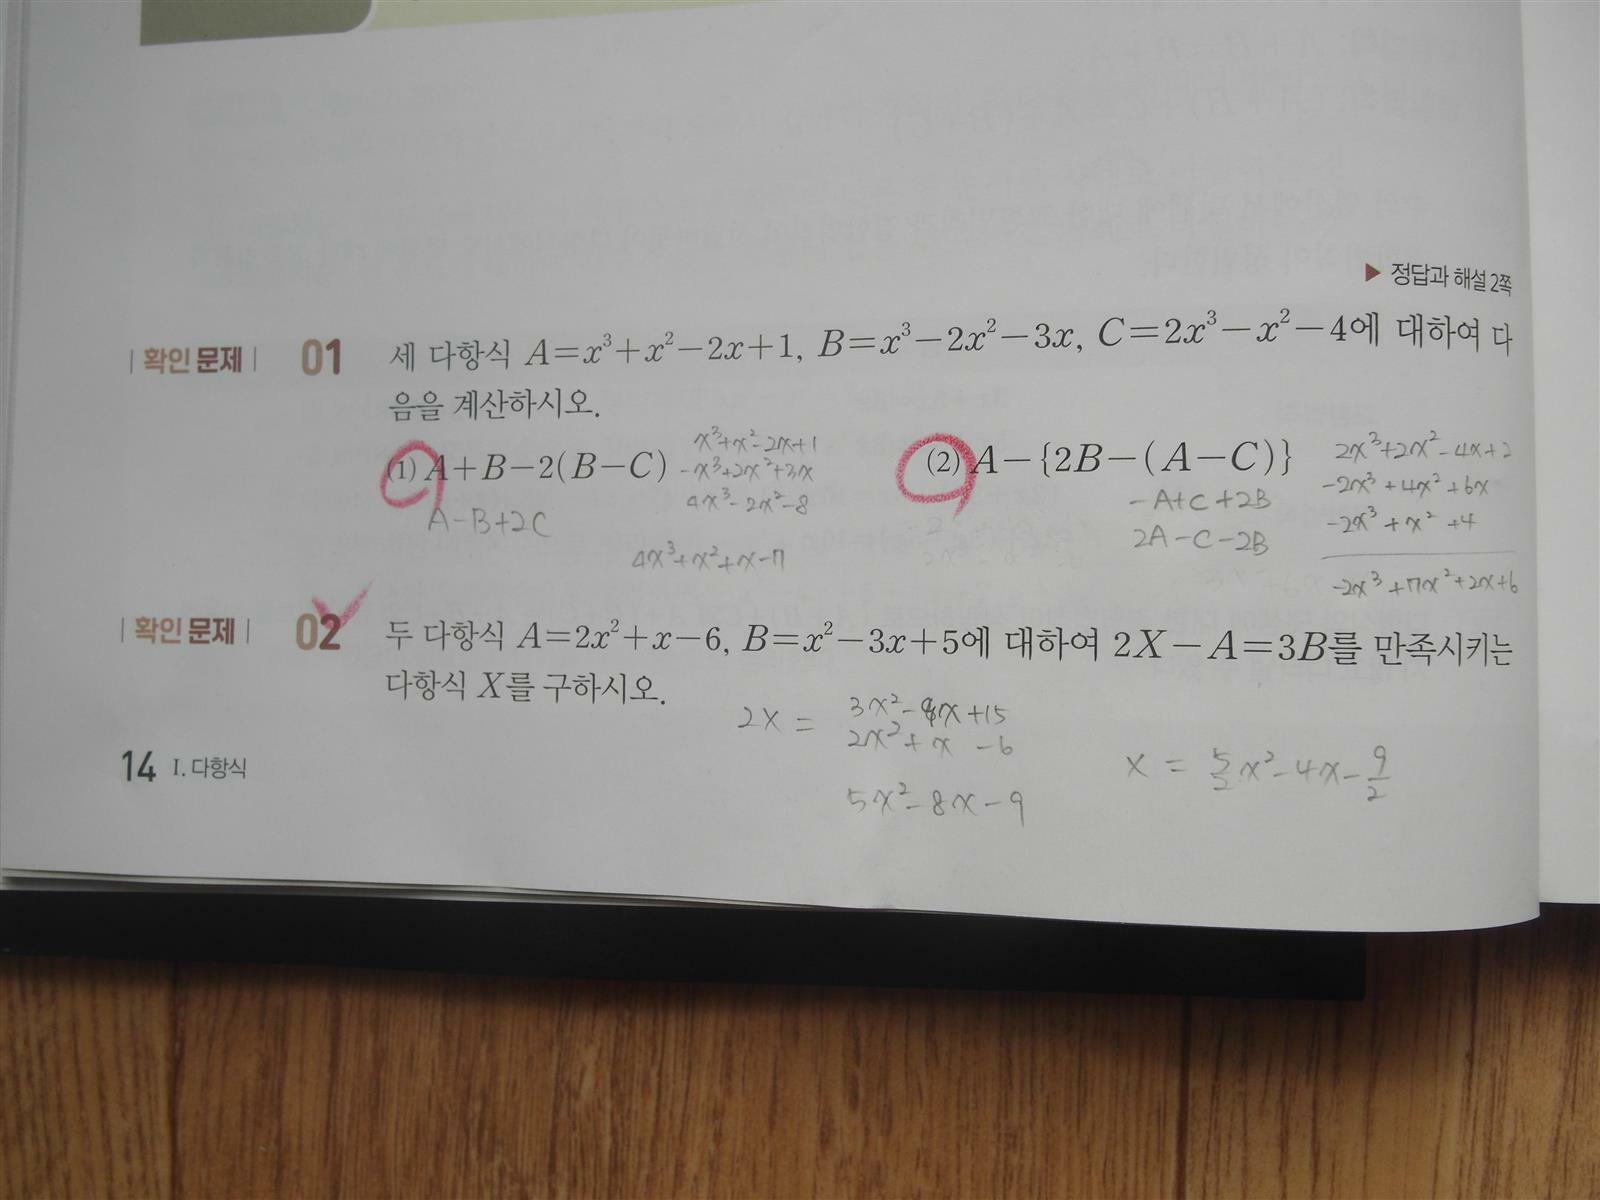 ▶ 정답과 해설 2쪽
| 확인 문제 | 01 세 다항식 A=x³+x²-2x+1, B=x³-2x²-3x, C=2x³-x²-4에 대하여 다
음을 계산하시오.
(1) A+B-2(B-C)
A-B+2C
x³+x²-2x+1
-x³+2x²+3x
4x³-2x²-8
4x³+x²+x-7
(2) A-{2B-(A-C)}
-A+C+2B
2A-C-2B
2x³+2x²-4x+2
-2x³+4x²+6x
-2x³+x² +4
-2x³+7x²+2x+6
| 확인 문제 | 02 두 다항식 A=2x²+x-6, B=x²-3x+5에 대하여 2X-A=3B를 만족시키는
다항식 X를 구하시오.
2X = 3x²-9x+15
2x²+x -6
5x²-8x-9
X = 5/2 x²-4x-9/2
14 I. 다항식